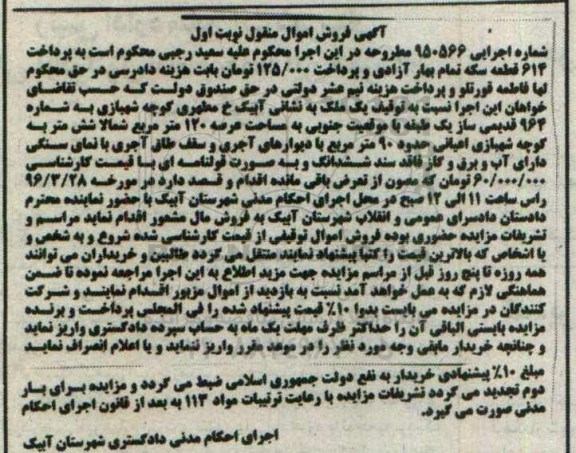 آگهی فروش اموال منقول نوبت اول
شماره اجرایی ۹۵۰۵۶۶ مطروحه در این اجرا محکوم علیه سعید رجبی محکوم است به پرداخت
۶۱۴ قطعه سکه تمام بهار آزادی و پرداخت ۱۲۵/۰۰۰ تومان بابت هزینه دادرسی در حق محکوم
لها فاطمه قورتلو و پرداخت هزینه نیم عشر دولتی در حق صندوق دولت که حسب تقاضای
خواهان این اجرا نسبت به توقیف یک ملک به نشانی آبیک خ مطهری کوچه شهبازی به شماره
۹۶۴ قدیمی ساز یک طبقه با موقعیت جنوبی به مساحت عرصه ۱۲۰ متر مربع شمالا شش متر به
کوچه شهبازی اعیانی حدود ۹۰ متر مربع با دیوارهای آجری و سقف طاق آجری با نمای سنگی
دارای آب و برق و گاز فاقد سند ششدانگ و به صورت قولنامه ای با قیمت کارشناسی
۶۰/۰۰۰/۰۰۰ تومان که مصون از تعرض باقی مانده اقدام و قصد دارد در مورخه ۹۶/۳/۲۸
راس ساعت ۱۱ الی ۱۲ صبح در محل اجرای احکام مدنی شهرستان آبیک با حضور نماینده محترم
دادستان دادسرای عمومی و انقلاب شهرستان آبیک به فروش مال مشهور اقدام نماید مراسم و
تشریفات مزایده حضوری بوده فروش اموال توقیفی از قیمت کارشناسی شده شروع و به شخص و
یا اشخاص که بالاترین قیمت را کتبا پیشنهاد نمایند منتقل می گردد طالبین و خریداران می توانند
همه روزه تا پنج روز قبل از مراسم مزایده جهت مزید اطلاع به این اجرا مراجعه نموده تا ضمن
هماهنگی لازم که به عمل خواهد آمد نسبت به بازدید از اموال مزبور اقدام نمایند و شرکت
کنندگان در مزایده می بایست بدوا ۱۰٪ قیمت پیشنهاد شده را فی المجلس پرداخت و برنده
مزایده بایستی الباقی آن را حداکثر ظرف مهلت یک ماه به حساب سپرده دادگستری واریز نماید
و چنانچه خریدار مابقی وجه مورد نظر را در موعد مقرر واریز ننماید و یا اعلام انصراف نماید
مبلغ ۱۰٪ پیشنهادی خریدار به نفع دولت جمهوری اسلامی ضبط می گردد و مزایده برای بار
دوم تجدید می گردد تشریفات مزایده با رعایت ترتیبات مواد ۱۱۳ به بعد از قانون اجرای احکام
مدنی صورت می گیرد.
اجرای احکام مدنی دادگستری شهرستان آبیک